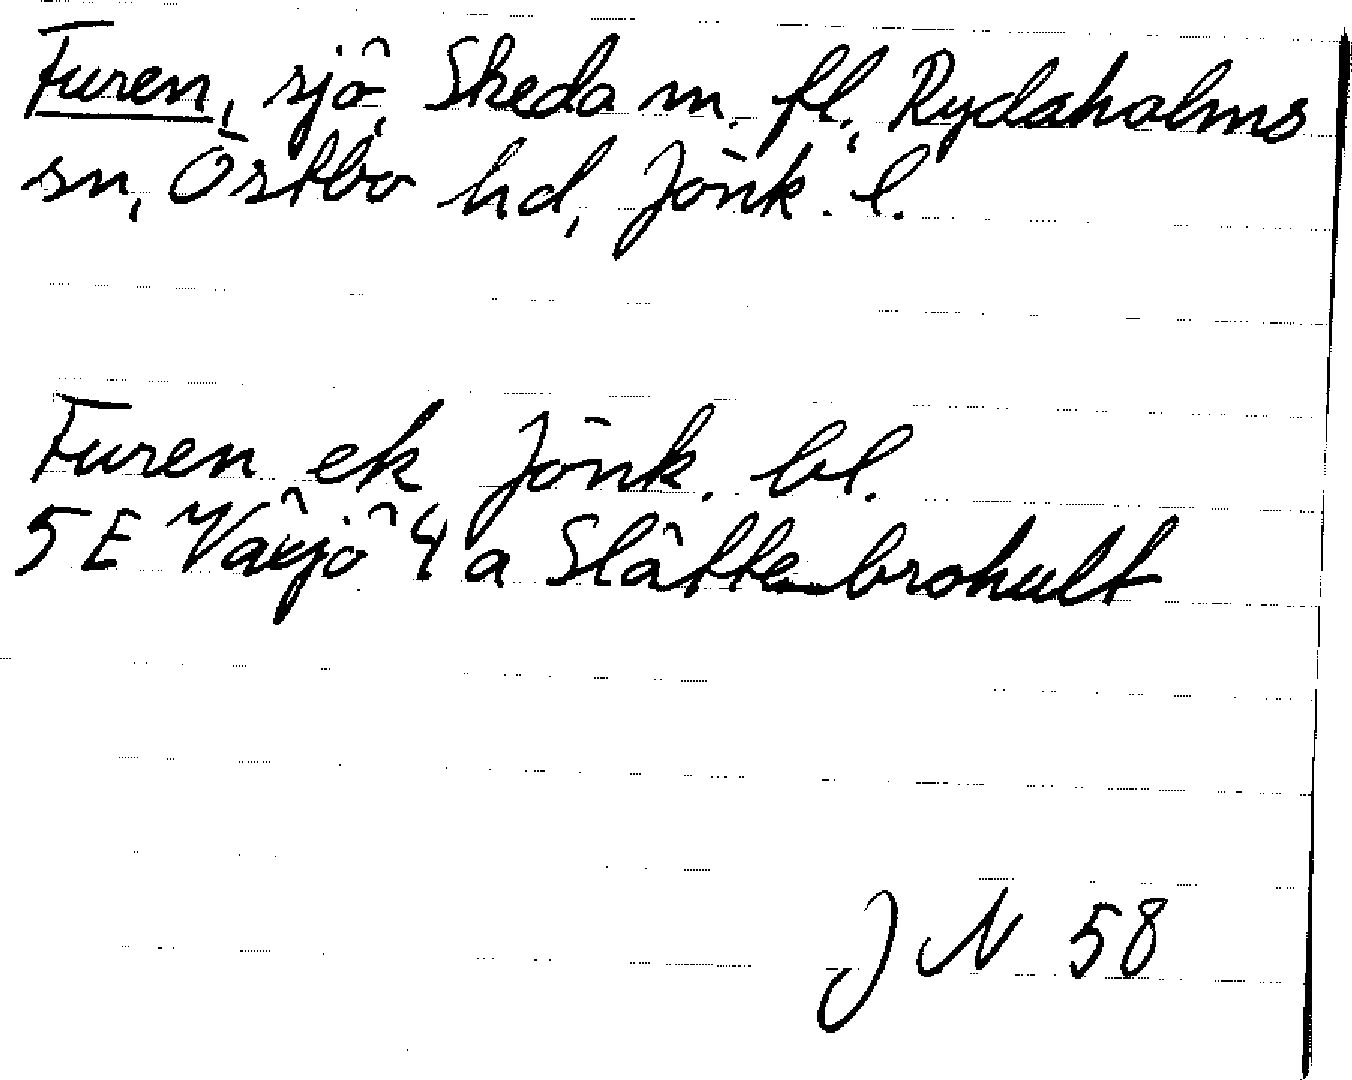 Furen, sjö, Skeda m. fl., Rydaholms
sn, Östbo hd, Jönk. l.
Furen ek Jönk. bl.
5 E Växjö 4 a Slättebrohult
J N 58